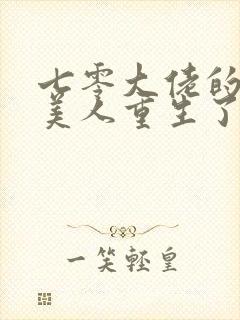 七零大佬的
美人重生了
一笑轻皇